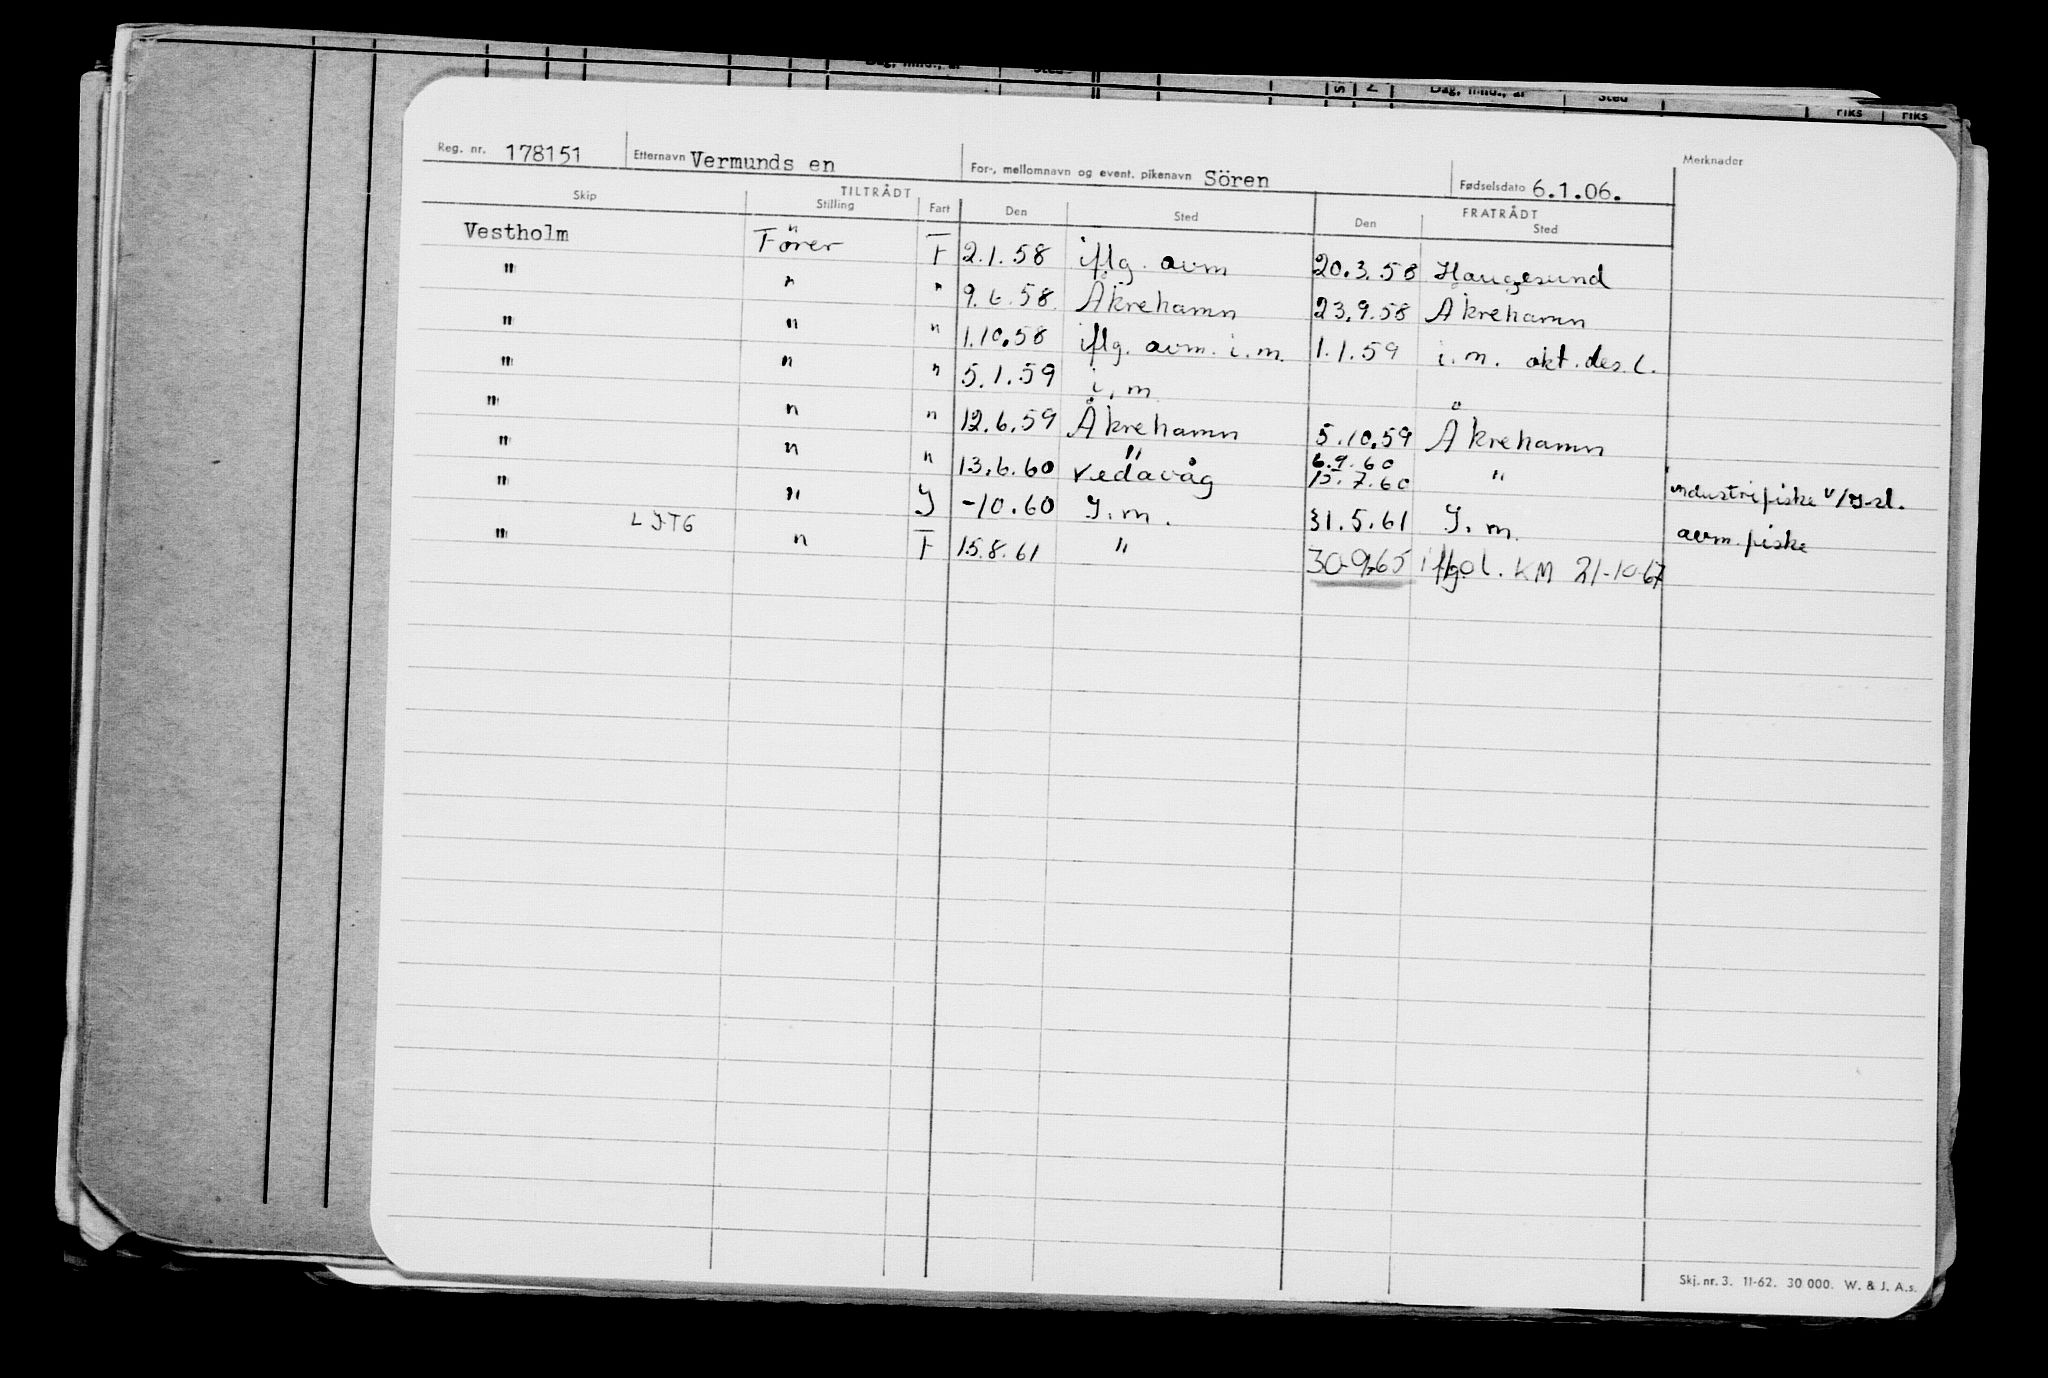 Reg. nr. 178151 Etternavn Vermunds en For-, mellomnavn og event. pikenavn Sören Fødselsdato 6.1.06. Merknader
TILTRÅDT FRATRÅDT
Skip Stilling Fart Den Sted Den Sted
Vestholm Förer F 2.1.58 iflg. avm 20.3.58 Haugesund
" " " 9.6.58. Åkrehamn 23.9.58 Åkrehamn
" " " 1.10.58 iflg. avm. i.m. 1.1.59 i.m. akt.des.L.
" " " 5.1.59 i.m
" " " 12.6.59 Åkrehamn 5.10.59 Åkrehamn
" " " 13.6.60 Vedavåg " 6.9.60 15.7.60 " industrifiske v/
" " Y -10.60 Y.m. 31.5.61 Y.m. avm. fiske
" " F 15.8.61 " 30-9-65 KM 21-10-67
Skj. nr. 3. 11-62. 30 000. W. & J. A.s.